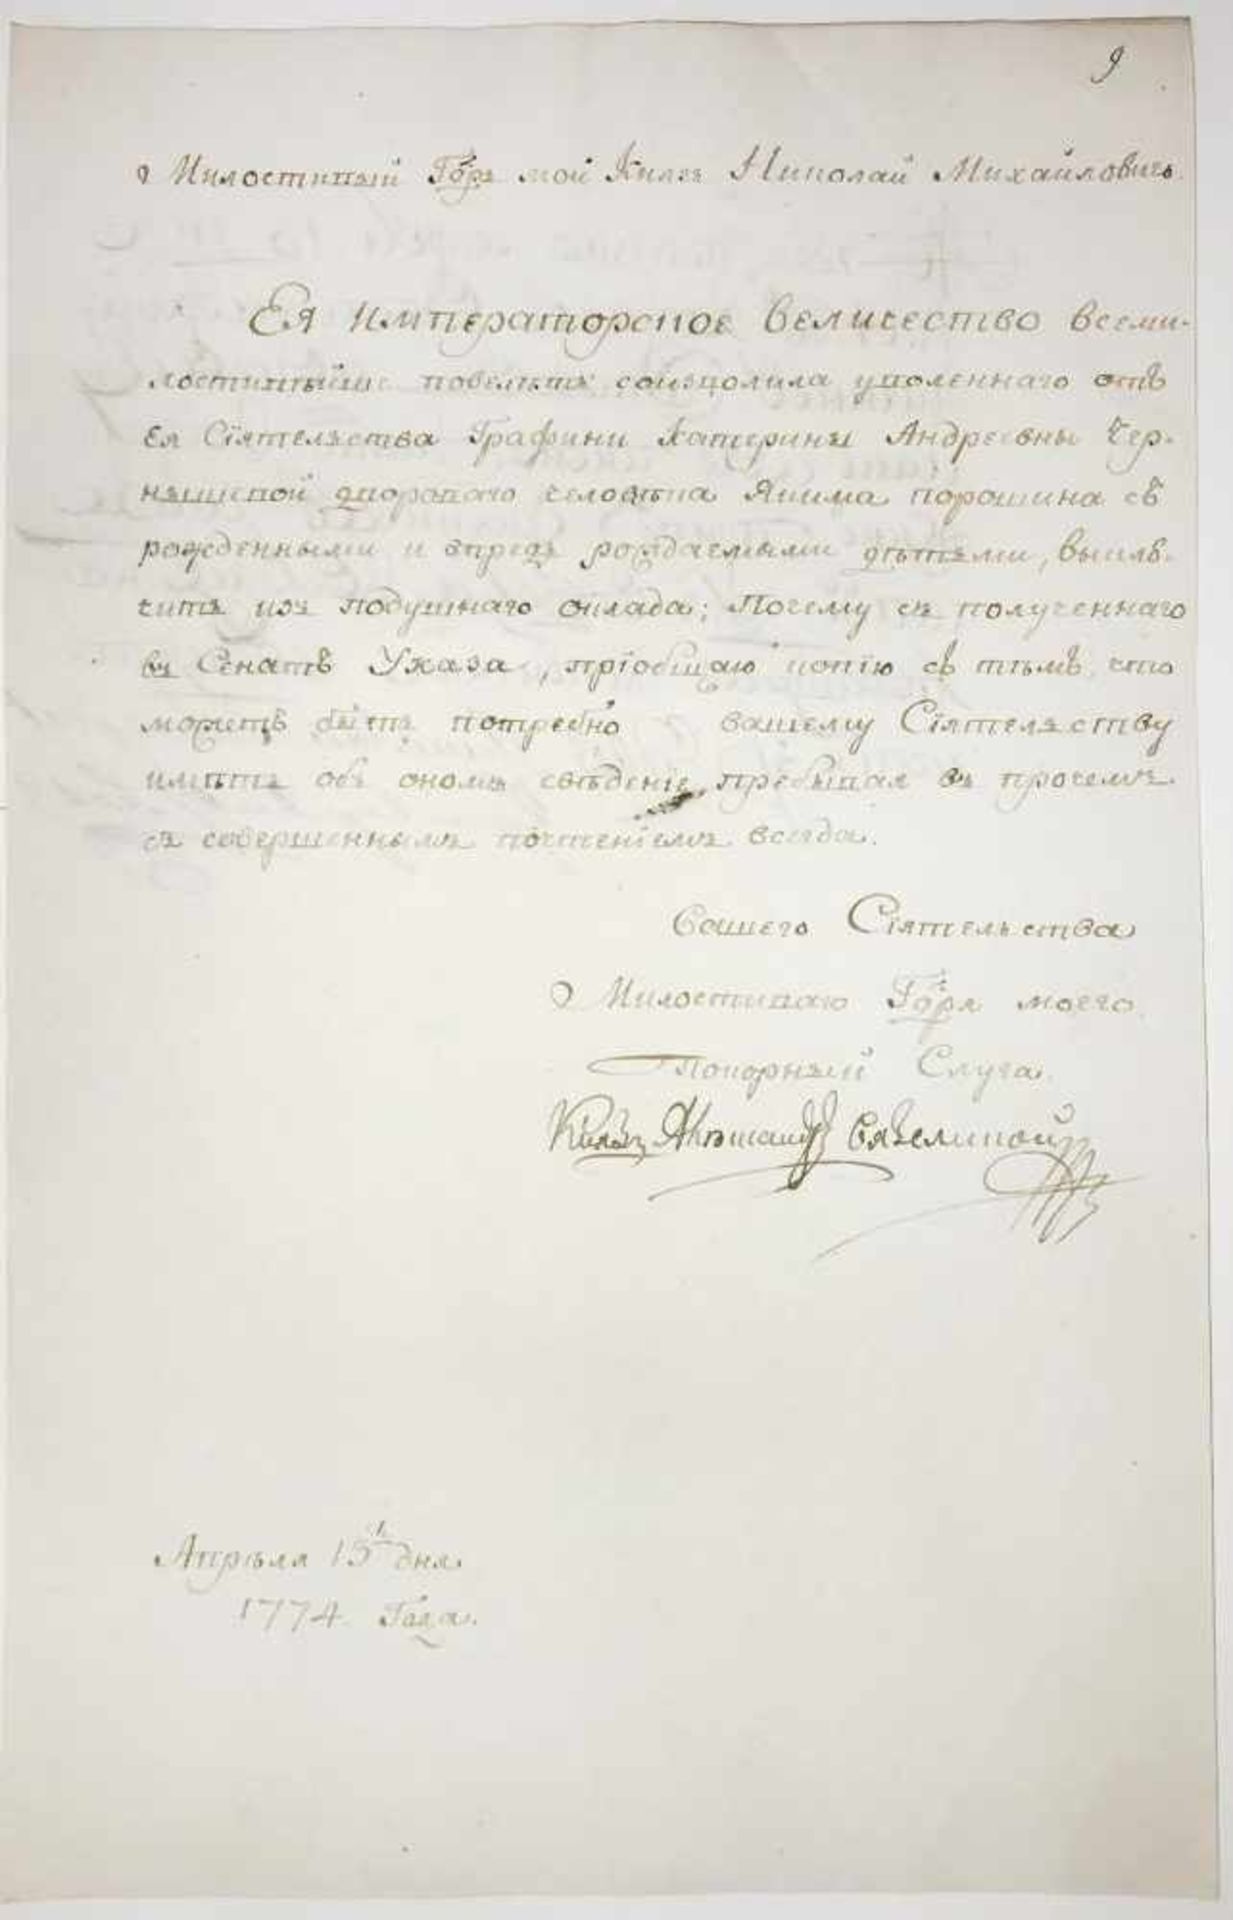 9
Милостивый Гдрь мой Князь Николай Михайловичь
Ея Императорское Величество всеми-
лостивѣйше повелѣть соизволила уволеннаго отъ
Ея Сіятельства Графини Катерины Андреевны Чер-
нышевой двороваго человѣка Якима Порошина съ
рожденными и впредь рождаемыми дѣтьми, выклю-
чить изъ подушнаго оклада; Почему съ полученнаго
въ Сенатѣ Указа, пріобщаю копію съ тѣмъ что
можетъ быть потребно вашему Сіятельству
имѣть объ ономъ свѣденіе, пребывая въ прочемъ
съ совершеннымъ почтеніемъ всегда.
Вашего Сіятельства
Милостиваго Гдря моего
Покорный Слуга.
Князь Вяземской
Апрѣля 15 дня
1774 Года.